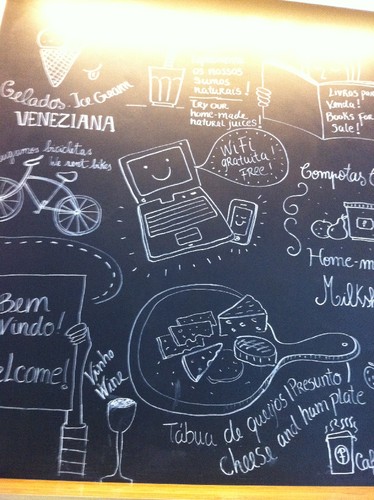 os nossos
Sumos
naturais!
Try our
home-made
natural juices!
Livros para
Venda!
Books For
Sale!
Gelados. Ice Cream
VENEZIANA
WiFi
gratuita!
FREE
bicicletas
We rent bikes
Compotas
Home-m
Milksh
Bem
Vindo!
Welcome!
Vinho
Wine
Tábua de queijos | Presunto
Cheese and ham plate
Café